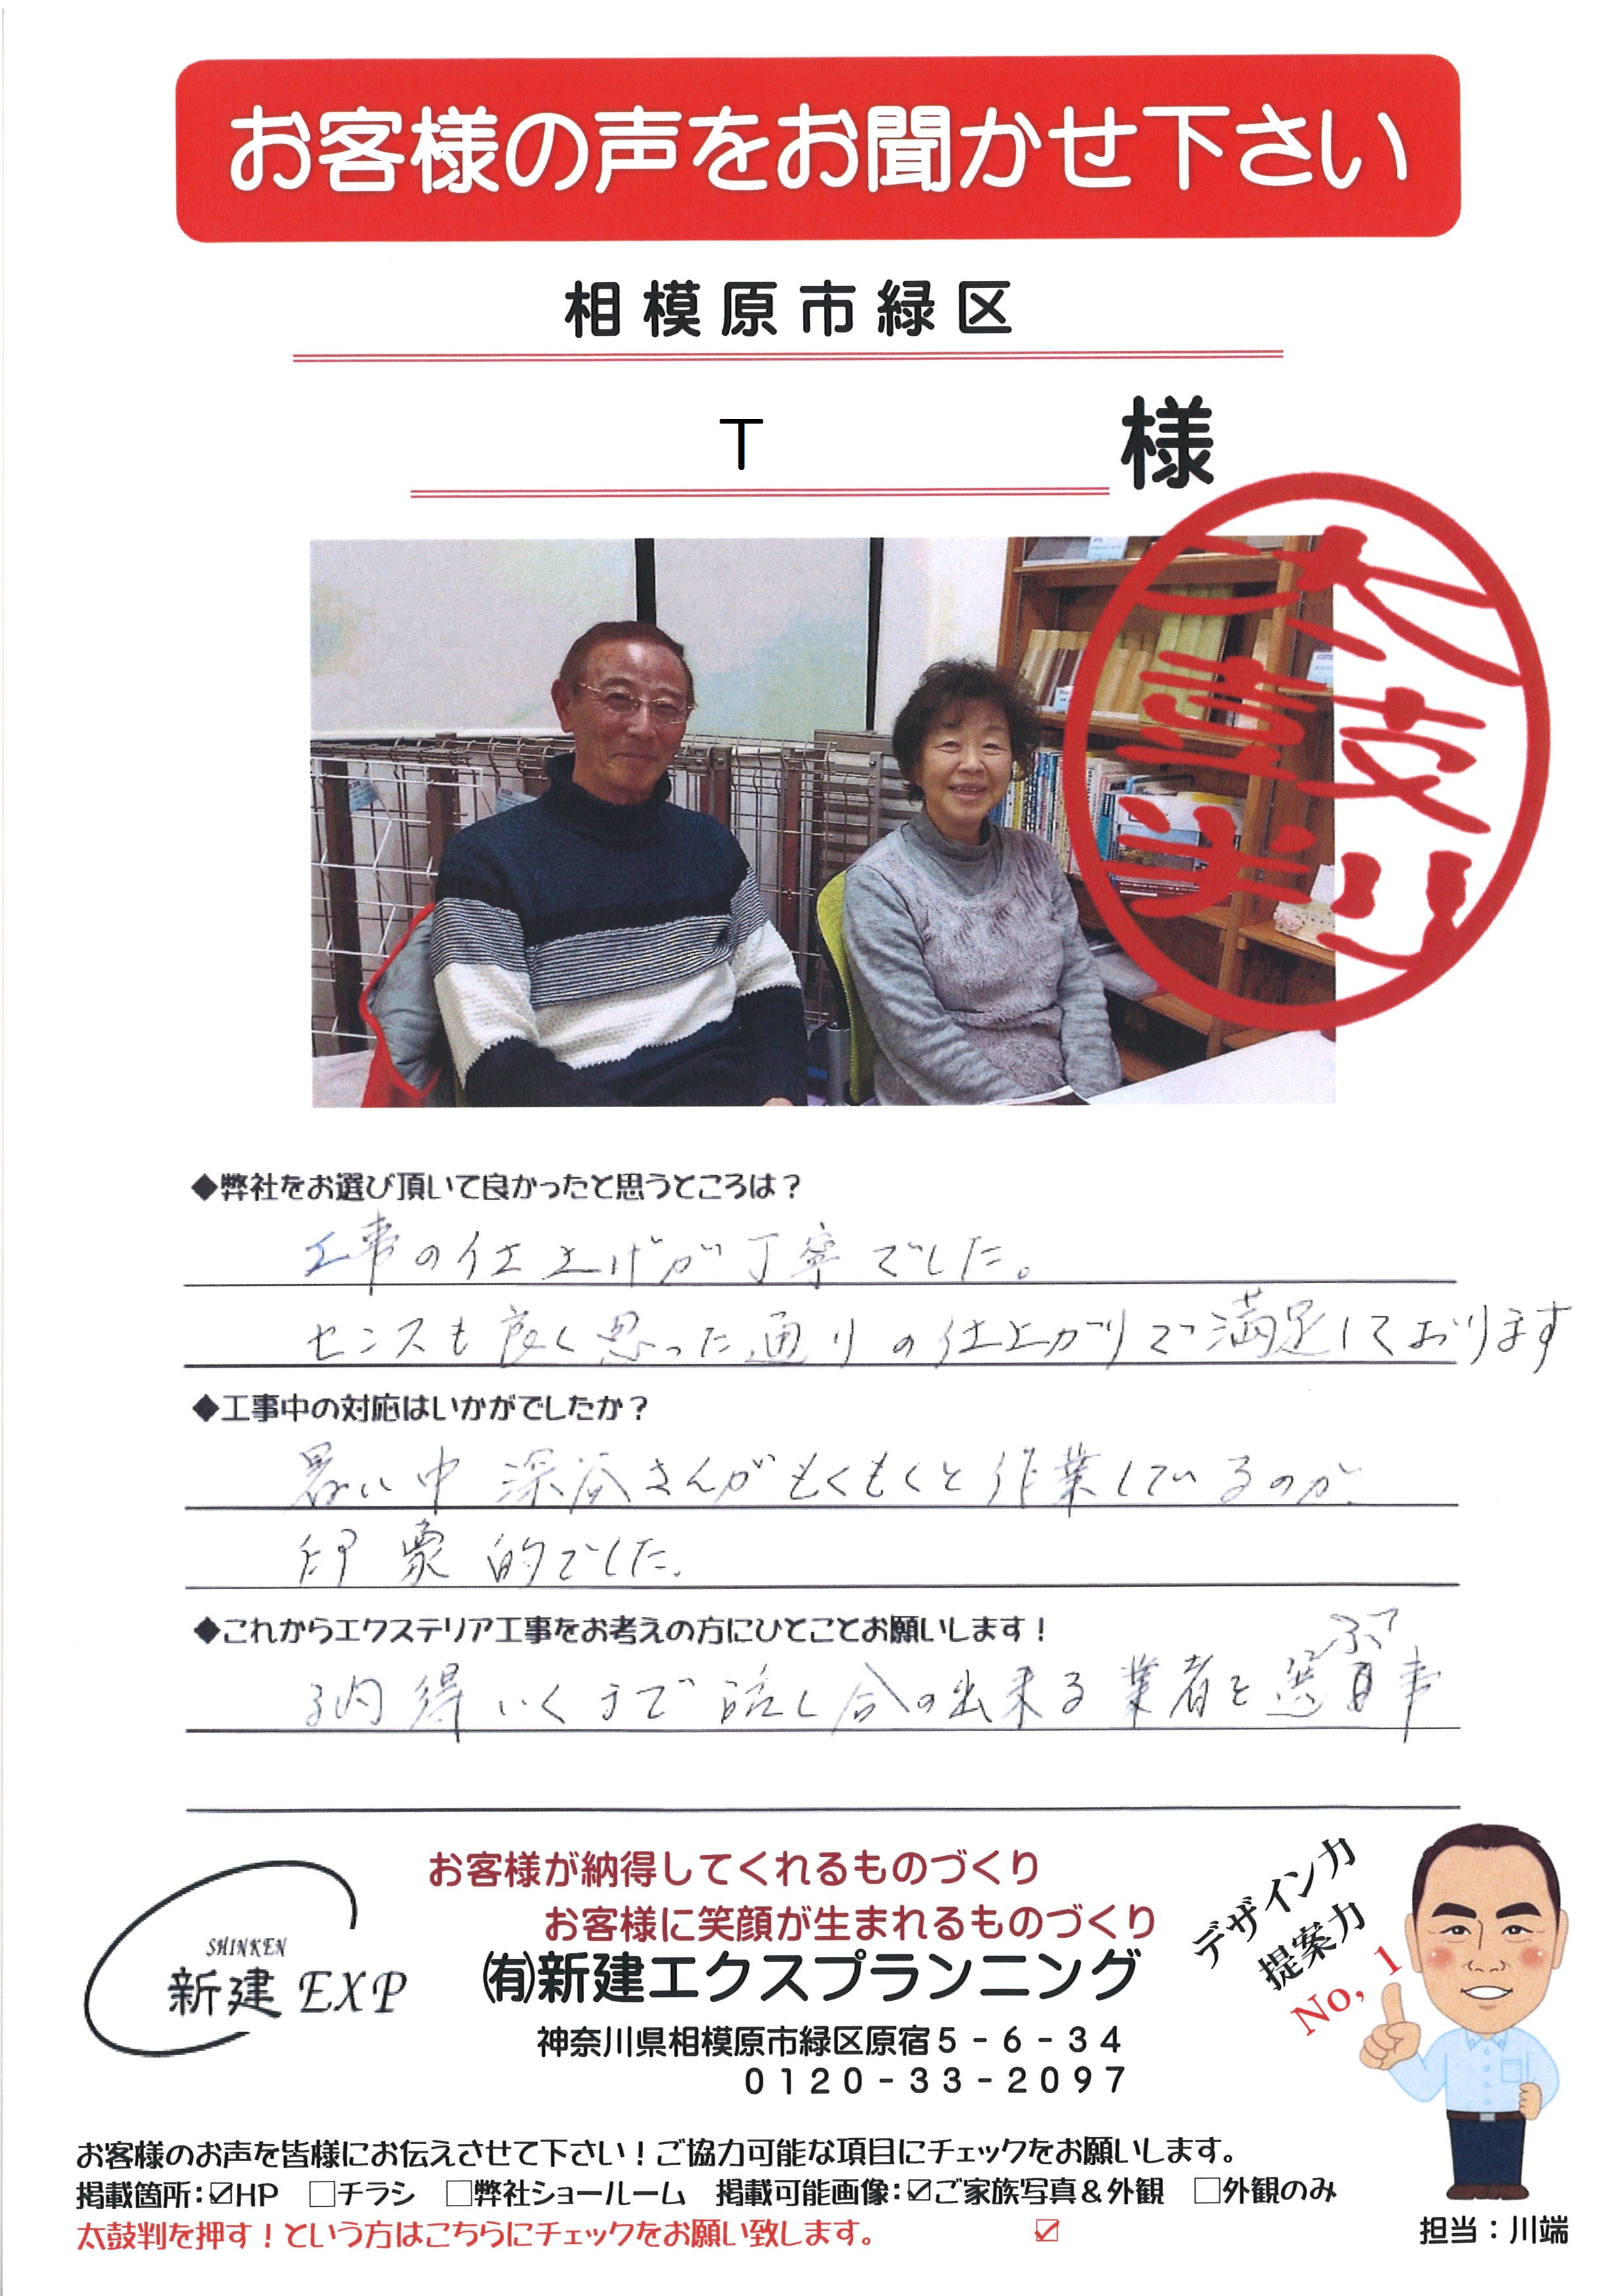 お客様の声をお聞かせ下さい
相模原市緑区
T 様
太鼓判
◆弊社をお選び頂いて良かったと思うところは？
工事の仕上げが丁寧でした。
センスも良く思った通りの仕上がりで満足しております
◆工事中の対応はいかがでしたか？
暑い中 深谷さんがもくもくと作業しているのが
印象的でした。
◆これからエクステリア工事をお考えの方にひとことお願いします！
ぶつ
納得いくまで話し合の出来る業者を選 事
お客様が納得してくれるものづくり
お客様に笑顔が生まれるものづくり
SHINKEN
新建 EXP
㈲新建エクスプランニング
神奈川県相模原市緑区原宿５-６-３４
０１２０-３３-２０９７
デザイン力
提案力
No, 1
お客様のお声を皆様にお伝えさせて下さい！ご協力可能な項目にチェックをお願いします。
掲載箇所：☑HP □チラシ □弊社ショールーム 掲載可能画像：☑ご家族写真＆外観 □外観のみ
太鼓判を押す！という方はこちらにチェックをお願い致します。 ☑
担当：川端